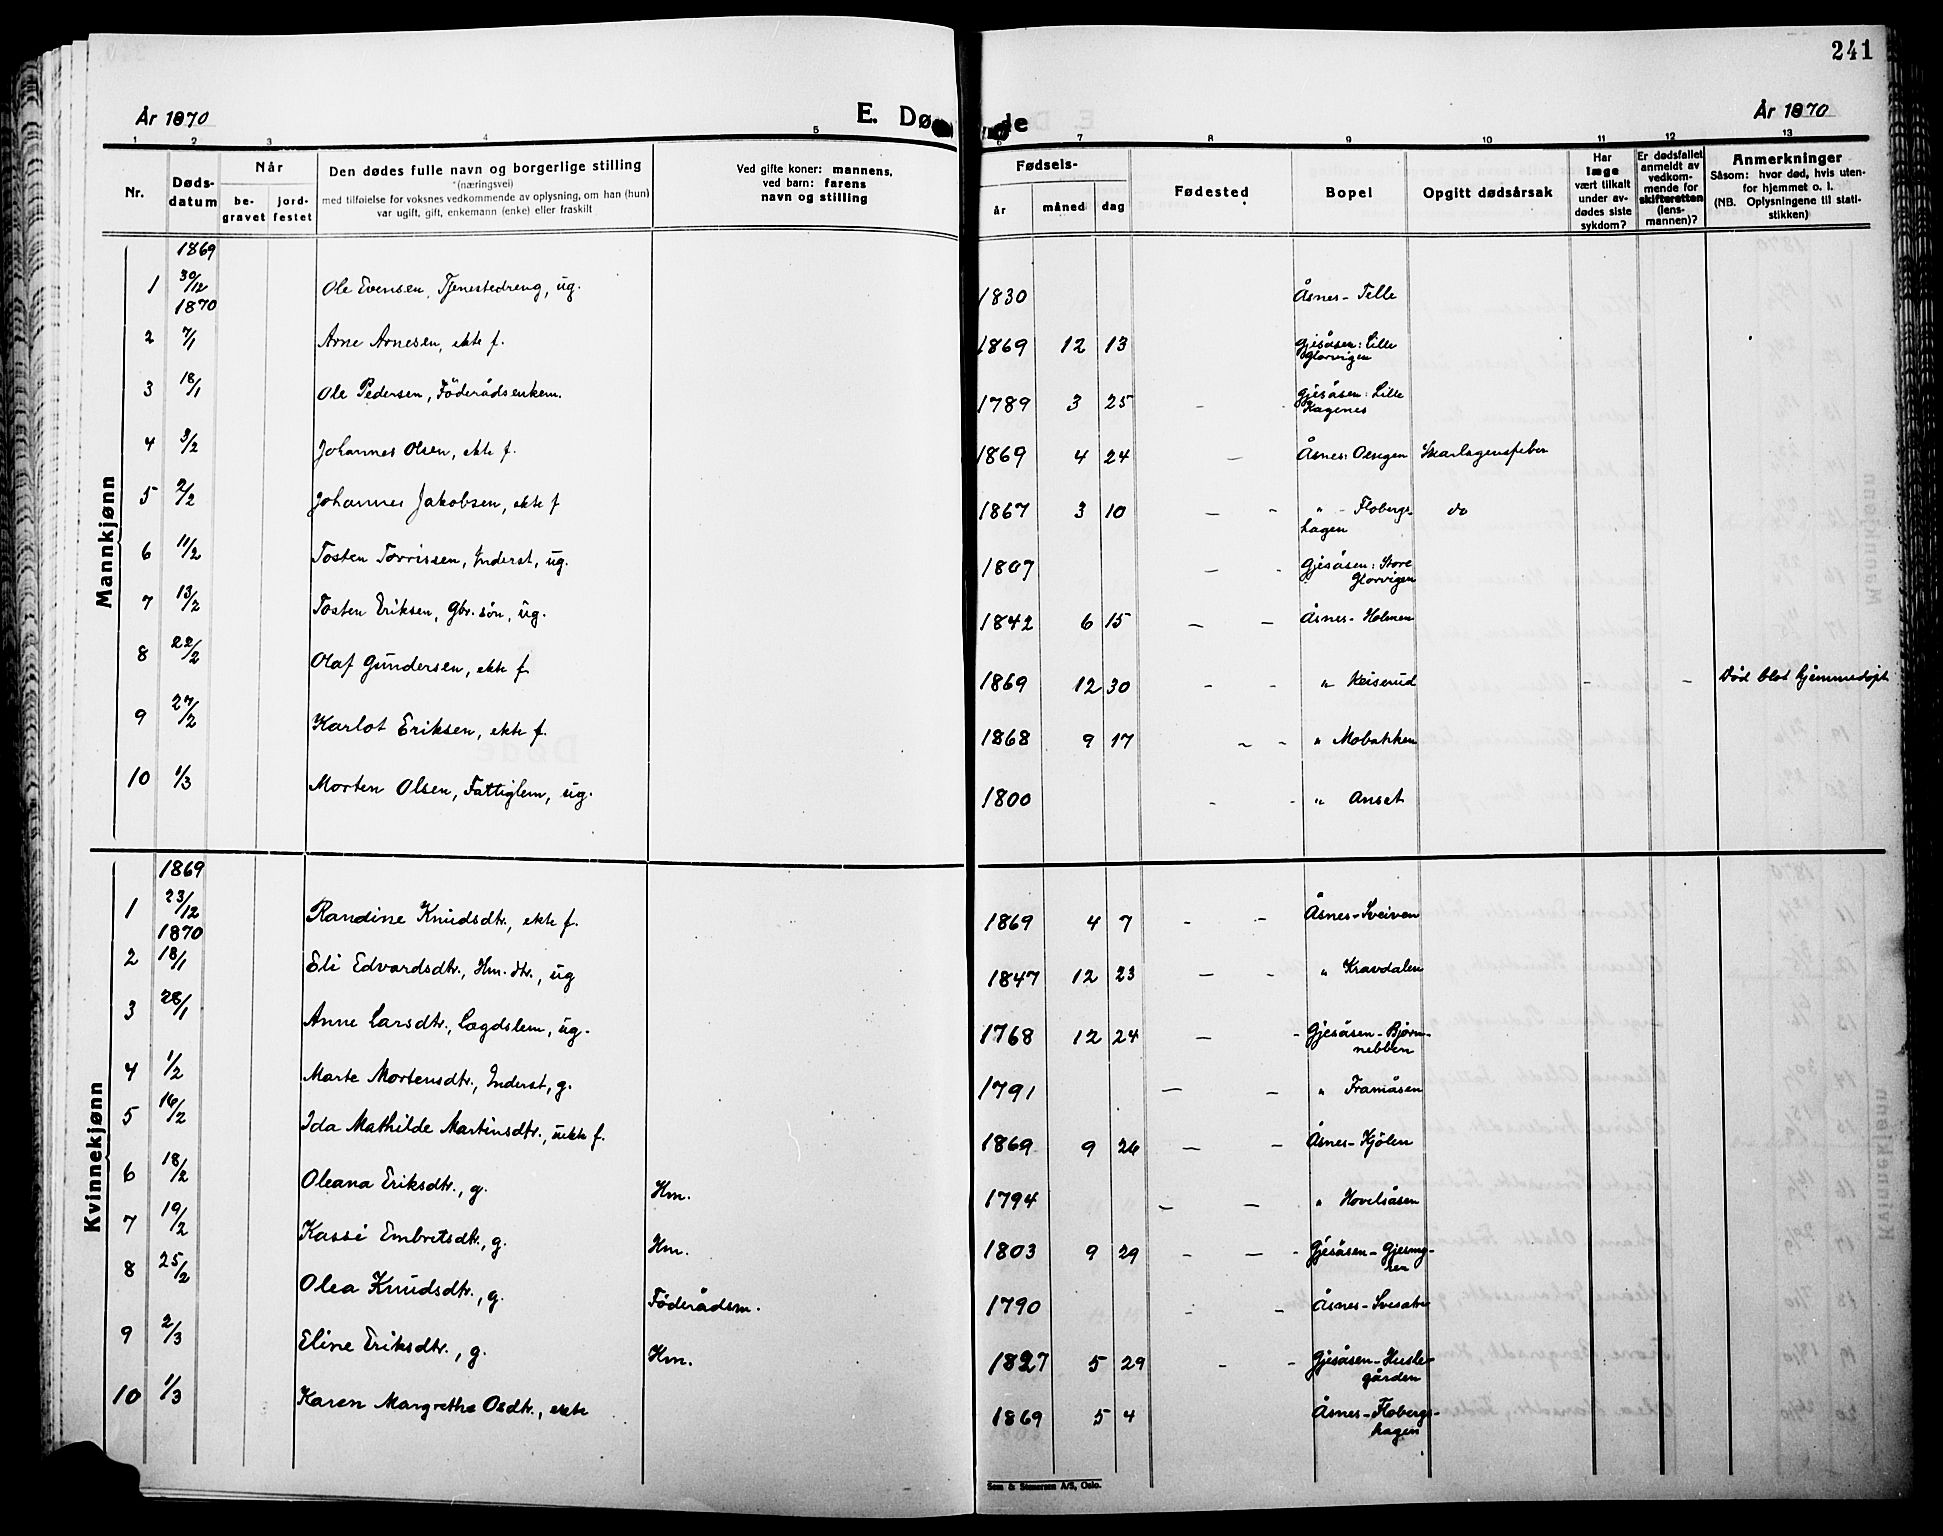 241
År 1870
E. Dø de
År 1870
1 2 3 4 5 6 7 8 9 10 11 12 13
Nr.
Dødsdatum
Når
begravet
jordfestet
Den dødes fulle navn og borgerlige stilling
(næringsvei)
med tilføielse for voksnes vedkommende av oplysning, om han (hun)
var ugift, gift, enkemann (enke) eller fraskilt
Ved gifte koner: mannens,
ved barn: farens
navn og stilling
Fødsels-
år måned dag
Fødested
Bopel
Opgitt dødsårsak
Har
læge
vært tilkalt
under avdødes siste
sykdom?
Er dødsfallet
anmeldt av
vedkommende for
skifteretten
(lensmannen)?
Anmerkninger
Såsom: hvor død, hvis utenfor hjemmet o. l.
(NB. Oplysningene til statistikken)
Mannkjønn
1869
1 30/12 Ole Evensen, Tjenestedreng, ug. 1830 Åsnes - Telle
1870
2 7/1 Arne Arnesen, ekte f. 1869 12 13 Gjesåsen: Lille
Glorvigen
3 18/1 Ole Pedersen, Föderådsenkem. 1789 3 25 - - Gjesåsen: Lille
Hagenes
4 3/2 Johannes Olsen, ekte f. 1869 4 24 - Åsnes: Oensgen Skarlagensfeber
5 2/2 Johannes Jakobsen, ekte f 1867 3 10 - - " - Flobergs- do
hagen
6 11/2 Tosten Torrissen, Inderst, ug. 1807 - - Gjesåsen: Store
Glorvigen
7 13/2 Tosten Eriksen, Gbr. søn, ug. 1842 6 15 - - Åsnes - Holmen
8 22/2 Olaf Gundersen, ekte f. 1869 12 30 - - " Keiserud - - Död blot hjemmedöpt
9 27/2 Karlot Eriksen, ekte f. 1868 9 17 - - " Mobakken
10 1/3 Morten Olsen, Fattiglem, ug. 1800 - - " Anset
Kvinnekjønn
1869
1 23/12 Randine Knudsdtr., ekte f. 1869 4 7 - - Åsnes - Sveiven
1870
2 18/1 Eli Edvardsdtr., Hm. dtr., ug 1847 12 23 - - " Kravdalen
3 28/1 Anne Larsdtr., Lægdslem, ug. 1768 12 24 - - Gjesåsen - Bjørn-
nebben
4 1/2 Marte Mortensdtr., Inderst, g. 1791 - - " Framåsen
5 16/2 Ida Mathilde Martinsdtr., uekte f. 1869 9 26 - - Åsnes - Kjölen
6 18/2 Oleana Eriksdtr., g. Hm. 1794 - - " Hovelsåsen
7 19/2 Kassi Embretsdtr., g. Hm. 1803 9 29 - - - Gjesåsen - Gjesmy-
ren
8 25/2 Olea Knudsdtr., g. Föderådsm. 1790 - - Åsnes - Svesæter
9 2/3 Eline Eriksdtr., g. Hm. 1827 5 29 - - Gjesåsen - Husle-
gården
10 1/3 Karen Margrethe Osdtr., ekte 1869 5 4 Åsnes - Flobergs-
hagen
Sem & Stenersen A/S, Oslo.